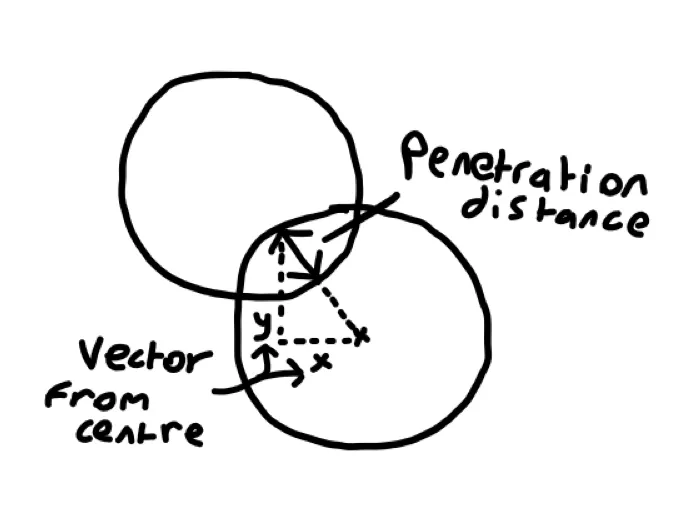 Penetration
distance
y
x
x
Vector
from
centre